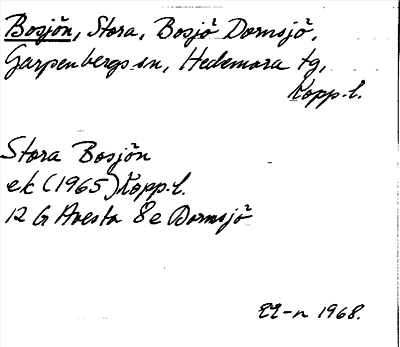 Bosjön, Stora, Bosjö Dormsjö,
Garpenbergs sn, Hedemora tg,
Kopp.l.
Stora Bosjön
ek (1965) Kopp.l.
12 G Avesta 8e Dormsjö
1968.